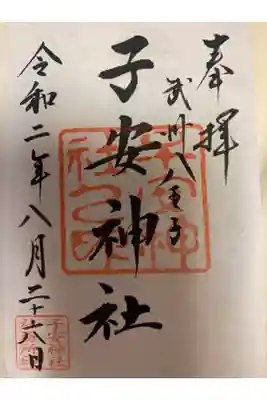 奉拝
武州八王子
子安神社
令和二年八月二十六日
子安神社